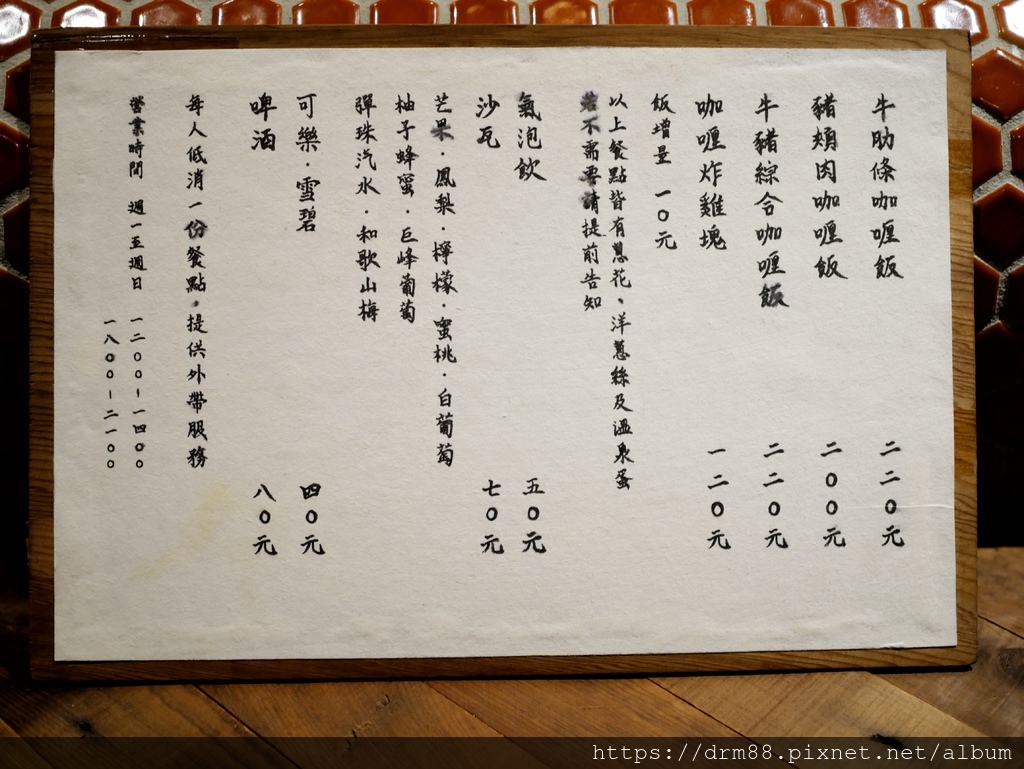 牛肋條咖喱飯 二二0元
豬頰肉咖喱飯 二00元
牛豬綜合咖喱飯 二二0元
咖喱炸雞塊 一二0元
飯增量 一0元
以上餐點皆有蔥花、洋蔥絲及溫泉蛋
若不需要請提前告知
氣泡飲 五0元
沙瓦 七0元
芒果·鳳梨·檸檬·蜜桃·白葡萄
柚子蜂蜜·巨峰葡萄
彈珠汽水·和歌山梅
可樂·雪碧 四0元
啤酒 八0元
每人低消一份餐點,提供外帶服務
營業時間 週一至週日 一二00-一四00
一八00-二一00
https://drm88.pixnet.net/album